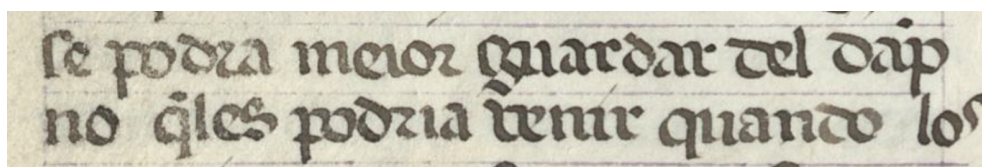 se podra meior guardar del dap̃
no q̃les podria uenir quando los